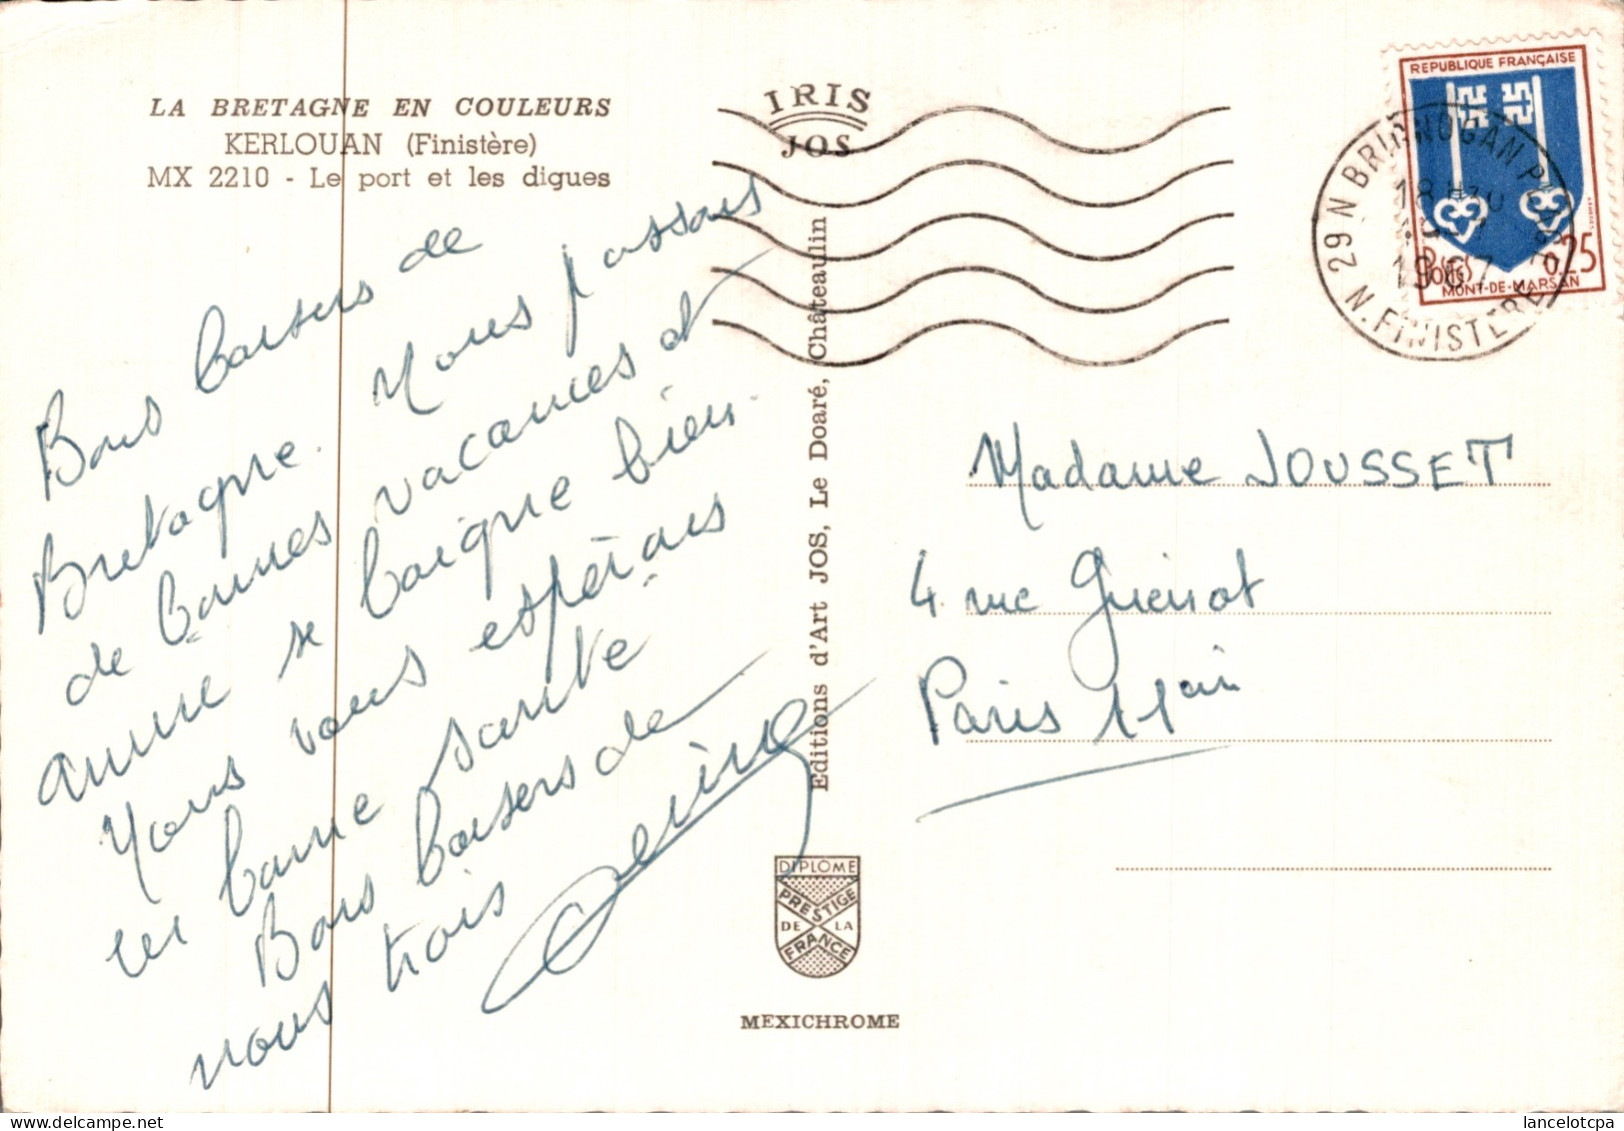 LA BRETAGNE EN COULEURS
KERLOUAN (Finistère)
MX 2210 - Le port et les digues
IRIS
JOS
REPUBLIQUE FRANÇAISE
Postes 0,25
MONT-DE-MARSAN
29 N BRIGNOGAN PLAGE
18 H30
1967
N. FINISTERE
Bons baisers de
Bretagne. Nous passons
de bonnes vacances et
Anne se baigne bien.
Nous vous espérons
en bonne santé
Bons baisers de
nous trois
Editions d'Art JOS, Le Doaré, Châteaulin
Madame JOUSSET
4 rue
Paris
DIPLOME
PRESTIGE
DE LA
FRANCE
MEXICHROME
www.lancelotcpa.com